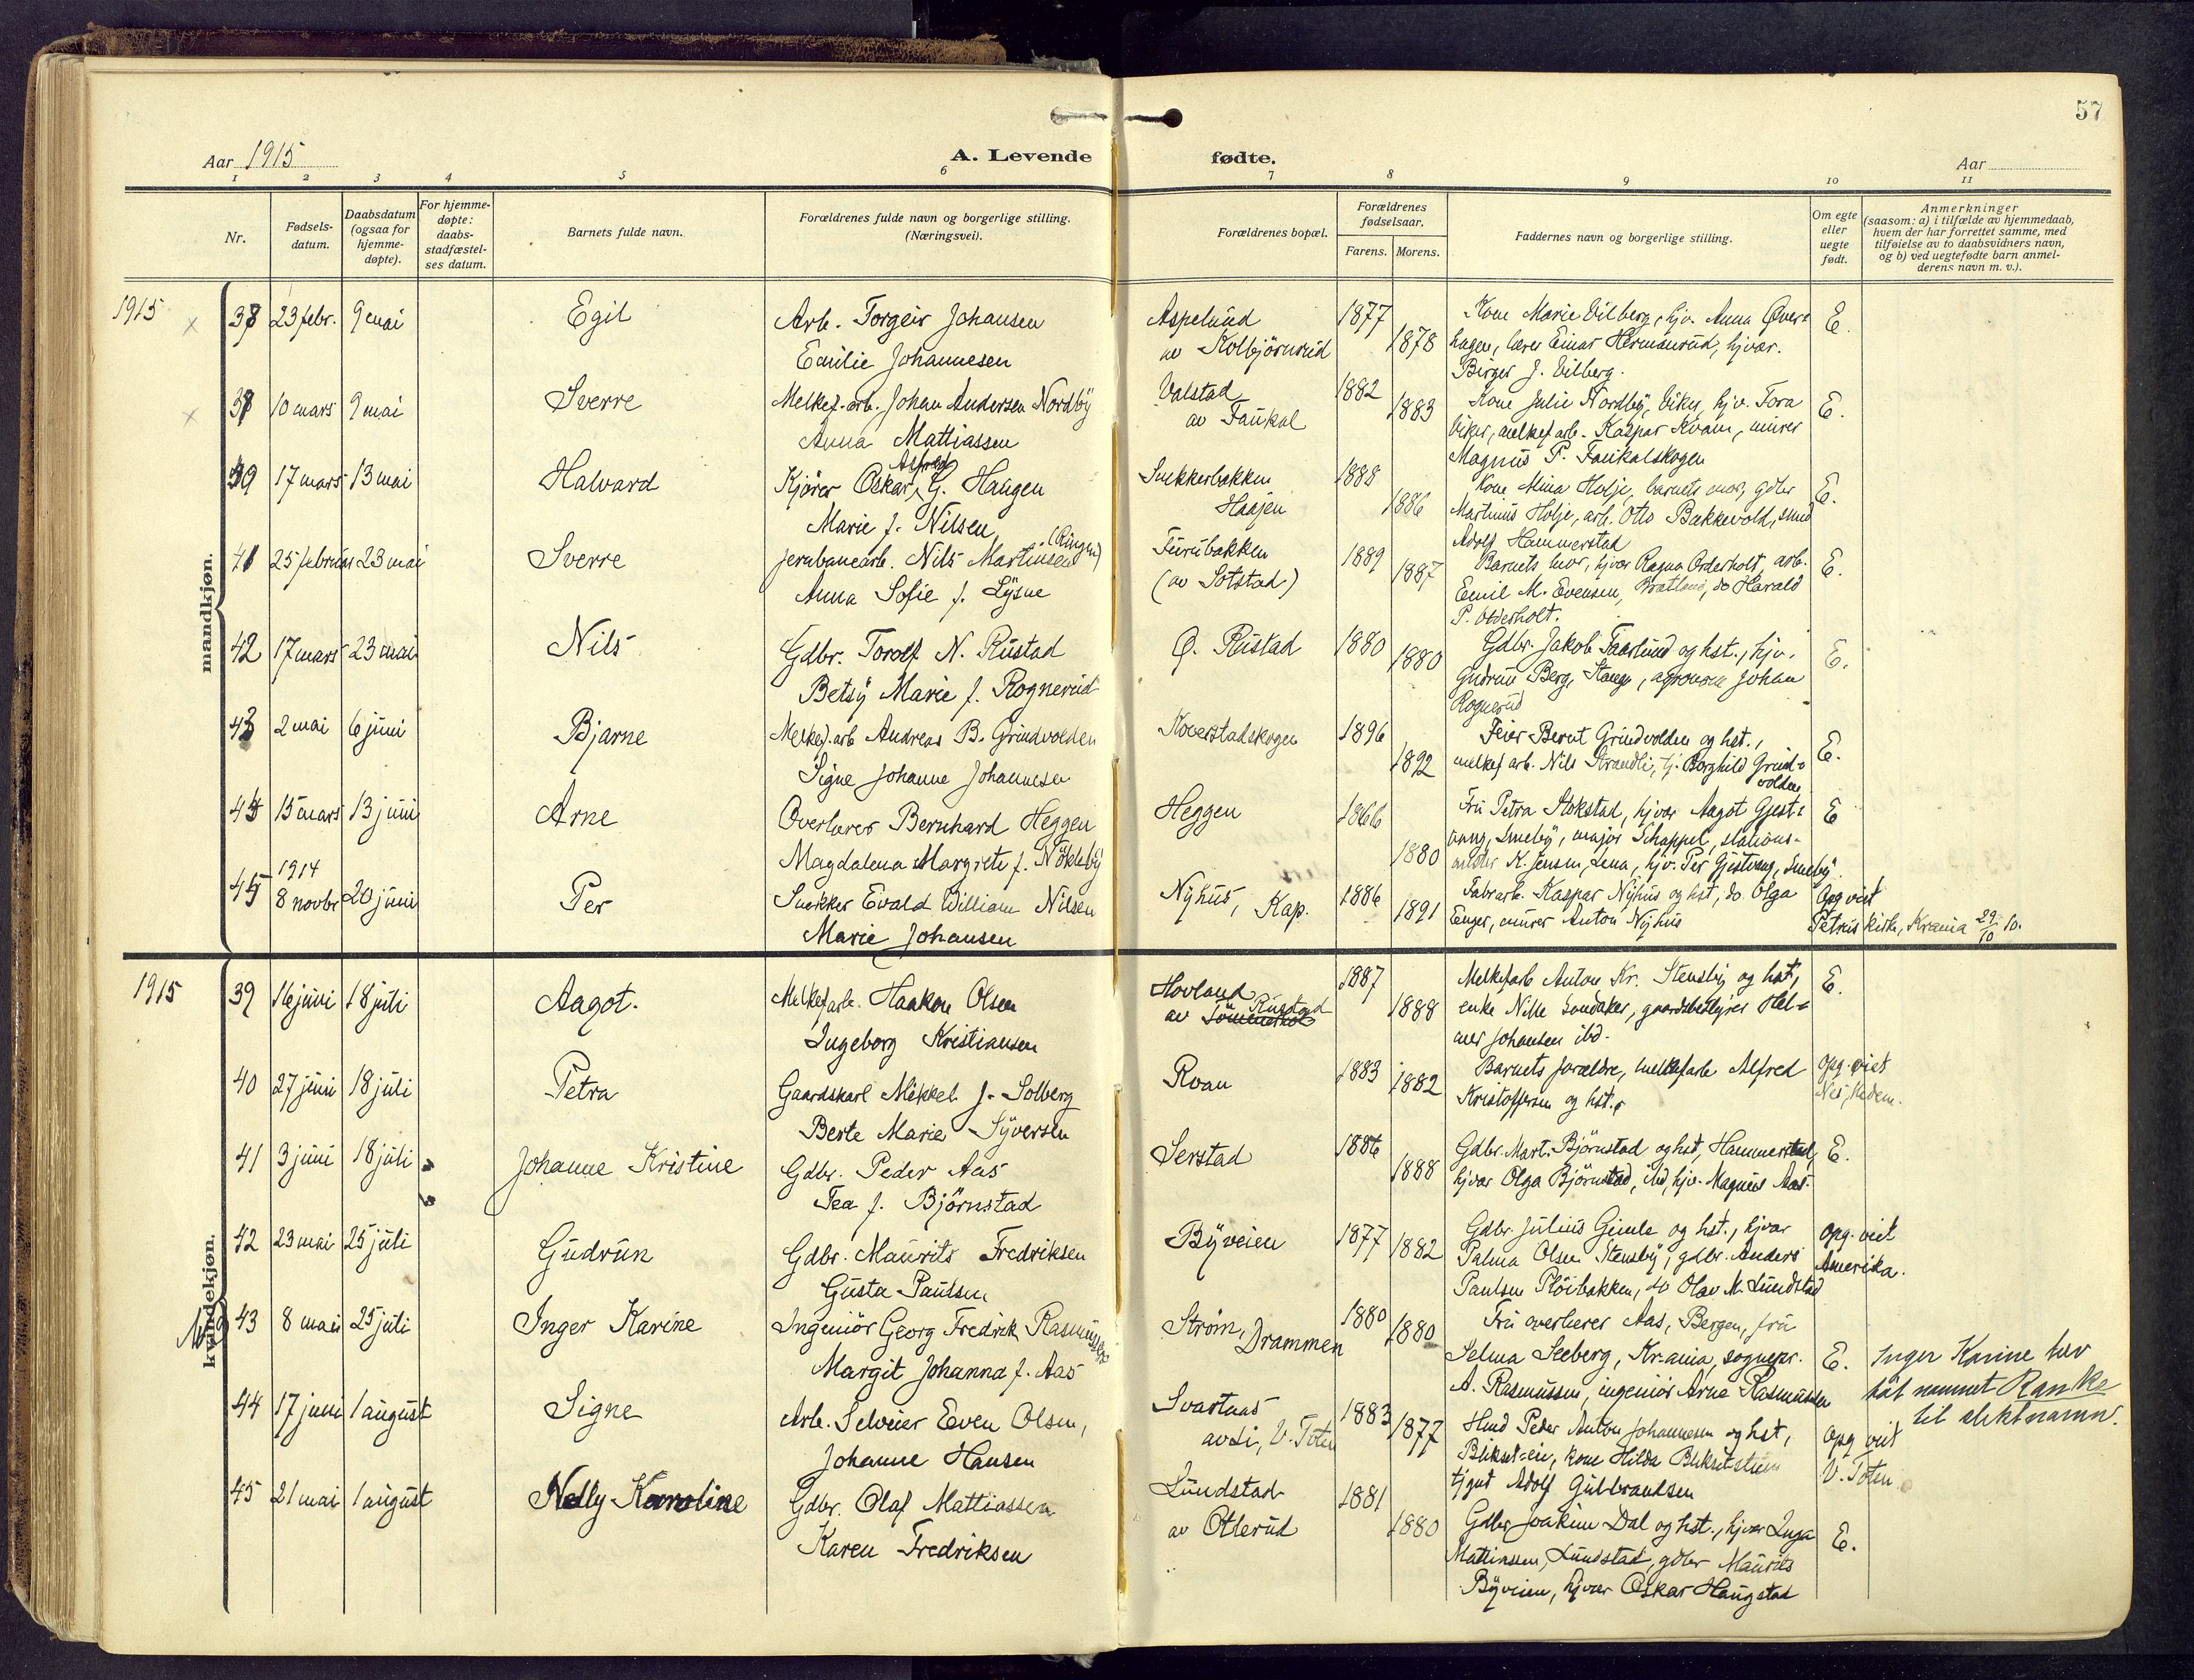 57
Aar 1915
A. Levende fødte.
Aar
1 2 3 4 5 6 7 8 9 10 11
Nr.
Fødsels-
datum.
Daabsdatum
(ogsaa for
hjemme-
døpte).
For hjemme-
døpte:
daabs-
stadfæstel-
ses datum.
Barnets fulde navn.
Forældrenes fulde navn og borgerlige stilling.
(Næringsvei).
Forældrenes bopæl.
Forældrenes
fødselsaar.
Farens. Morens.
Faddernes navn og borgerlige stilling.
Om egte
eller
uegte
født.
Anmerkninger
(saasom: a) i tilfælde av hjemmedaab,
hvem der har forrettet samme, med
tilføielse av to daabsvidners navn,
og b) ved uegtefødte barn anmel-
derens navn m. v.).
mandkjøn.
1915 × 23 febr. 9 mai Egil Arb. Torgeir Johansen
Emilie Johannesen
Aspelund
av Kolbjörnrud
1877
1878
Kone Marie Vilberg, hjv. Anna Øver=
hagen, lærer Einar Hermanrud, hjvær.
Birger J. Vilberg.
E.
× 10 mars 9 mai Sverre Melkef. arb. Johan Andersen Nordby
Anna Mattiassen
Valstad
av Faukal
1882
1883
Kone Julie Nordby, Viker, hjv. Tora
Viker, melkef arb. Kaspar Kvam, murer
Magnus P. Faukalskogen
E.
39 17 mars 13 mai Halvard Kjører Oskar Alfred G. Haugen
Marie f. Nilsen
Snekkerbakken
Haajen
1888
1886
Kone Mina Holje, barnets mor, gdbr
Martinus Holje, arb. Otto Bakkevold, smed
Adolf Hammerstad
E.
41 25 februar 23 mai Sverre Jernbanearb. Nils Martinsen (Ringen)
Anna Sofie f. Lysne
Furubakken
(av Sotstad)
1889
1887
Barnets mor, hjvær Ragna Orderholt, arb.
Emil M. Evensen, Bratland, do Harald
P. Olderholt.
E.
42 17 mars 23 mai Nils Gdbr. Torolf N. Rustad
Betsy Marie f. Rognerud
Ø. Rustad
1880
1880
Gdbr. Jakob Faarlund og hst., hjv.
Gudrun Berg, Stange, agronom Johan
Rognerud
E.
43 2 mai 6 juni Bjarne Melkef. arb Andreas B. Grindvolden
Signe Johanne Johannesen
Koverstadskogen
1896
1892
Feier Bernt Grindvolden og hst.,
melkef arb. Nils Strandli, tj. Borghild Grind=
volden
E.
44 15 mars 13 juni Arne Overlærer Bernhard Heggen
Magdalena Margrete f. Nökleby
Heggen
1866
1880
Fru Petra Stokstad, hjvær Aagot Gjest=
vang, Smeby, major Schappel, stations-
mester K. Jensen, Lena, hjv. Per Gjestvang, Smeby.
E
45 1914
8 novbr 20 juni Per Snekker Evald William Nilsen
Marie Johansen
Nyhus, Kap.
1886
1891
Fabrarb. Kaspar Nyhus og hst, do. Olga
Enger, murer Anton Nyhus
Opg viet
Petrus kirke, Krania 29/10 10.
kvindekjøn.
1915 39 16 juni 18 juli Aagot. Melkefarb. Haakon Olsen
Ingeborg Kristiansen
Hovland
av Rustad
1887
1888
Melkefarb Anton Kr. Stensby og hst,
enke Nille Sandaker, gaardsbestyrer Hel=
mer Johansen ibd.
E.
40 27 juni 18 juli Petra Gaardskarl Mikkel J. Solberg
Berte Marie Syversen
Roan
1883
1882
Barnets forældre, melkefarb Alfred
Kristoffersen og hst.
Opg. viet
Nes, Hedem.
41 3 juni 18 juli Johanne Kristine Gdbr. Peder Aas
Tea f. Björnstad
Serstad
1886
1888
Gdbr. Mart. Björnstad og hst, Hammerstad,
hjvær Olga Björnstad, ibd, hjv. Magnus Aas.
E.
42 23 mai 25 juli Gudrun Gdbr. Maurits Fredriksen
Gusta Paulsen
Byveien
1877
1882
Gdbr. Julius Gimle og hst., hjvær
Palma Olsen Stensby, gdbr. Anders
Paulsen Plöibakken, do Olav M. Lundstad
Opg. viet
Amerika.
43 8 mai 25 juli Inger Karine Ingeniör Georg Fredrik Rasmussen
Margit Johanna f. Aas
Strøm, Drammen
1880
1880
Fru overlærer Aas, Bergen, fru
Selma Seeberg, Kr.ania, sognepr.
A. Rasmussen, ingeniör Arne Rasmussen
E.
Inger Karine hev
tat namnet Ranke
til slektnamn.
44 17 juni 1 august Signe Arb. Selveier Even Olsen,
Johanne Hansen
Svartaas
av Li, V. Toten
1883
1877
Hmd Peder Anton Johannesen og hst,
Blikset-eie, kone Hilda
tjgut Adolf Gulbrandsen
Opg viet
V. Toten
45 21 mai 1 august Nelly Karoline Gdbr. Olaf Mattiassen
Karen Fredriksen
Lundstad
av Otterud
1881
1880
Gdbr Joakim Dal og hst., hjvær Inga
Mattiassen, Lundstad, gdbr Maurits
Byveien, hjvær Oskar Haugstad
E.